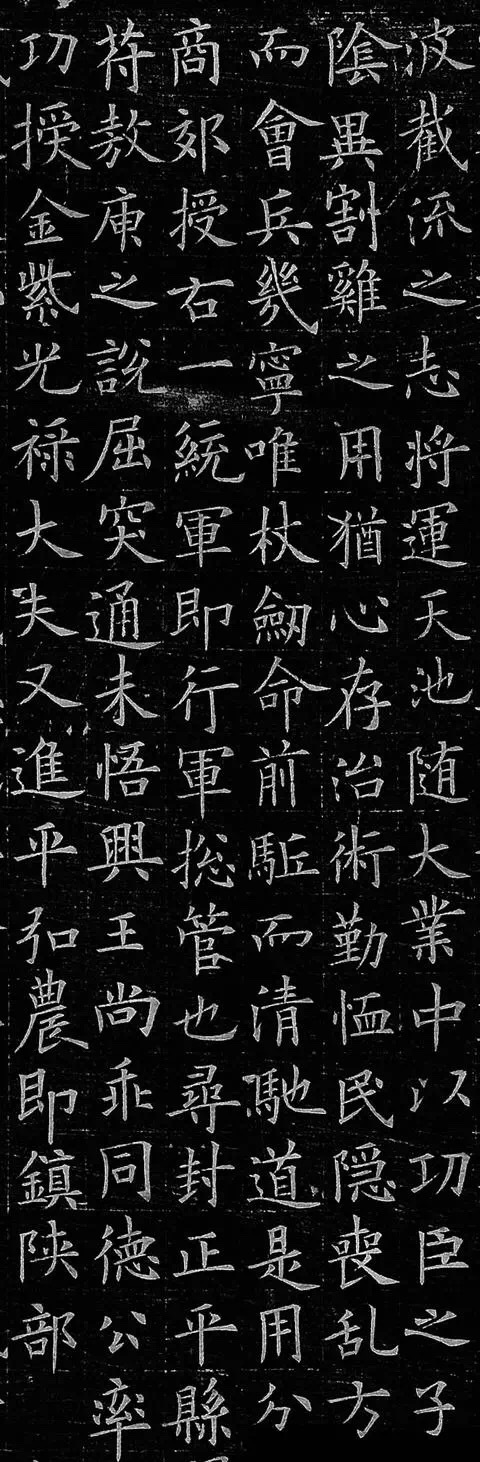 波截流之志将運天池随大業中以功臣之子
陰異割雞之用猶心存治術勤恤民隠喪乱方
而會兵幾寧唯杖劒命前駈而清馳道是用分
商郊授右一統軍即行軍総管也尋封正平縣
苻敖庾之說屈突通未悟興王尚乖同德公率
功授金紫光禄大夫又進平弘農即鎮陜部